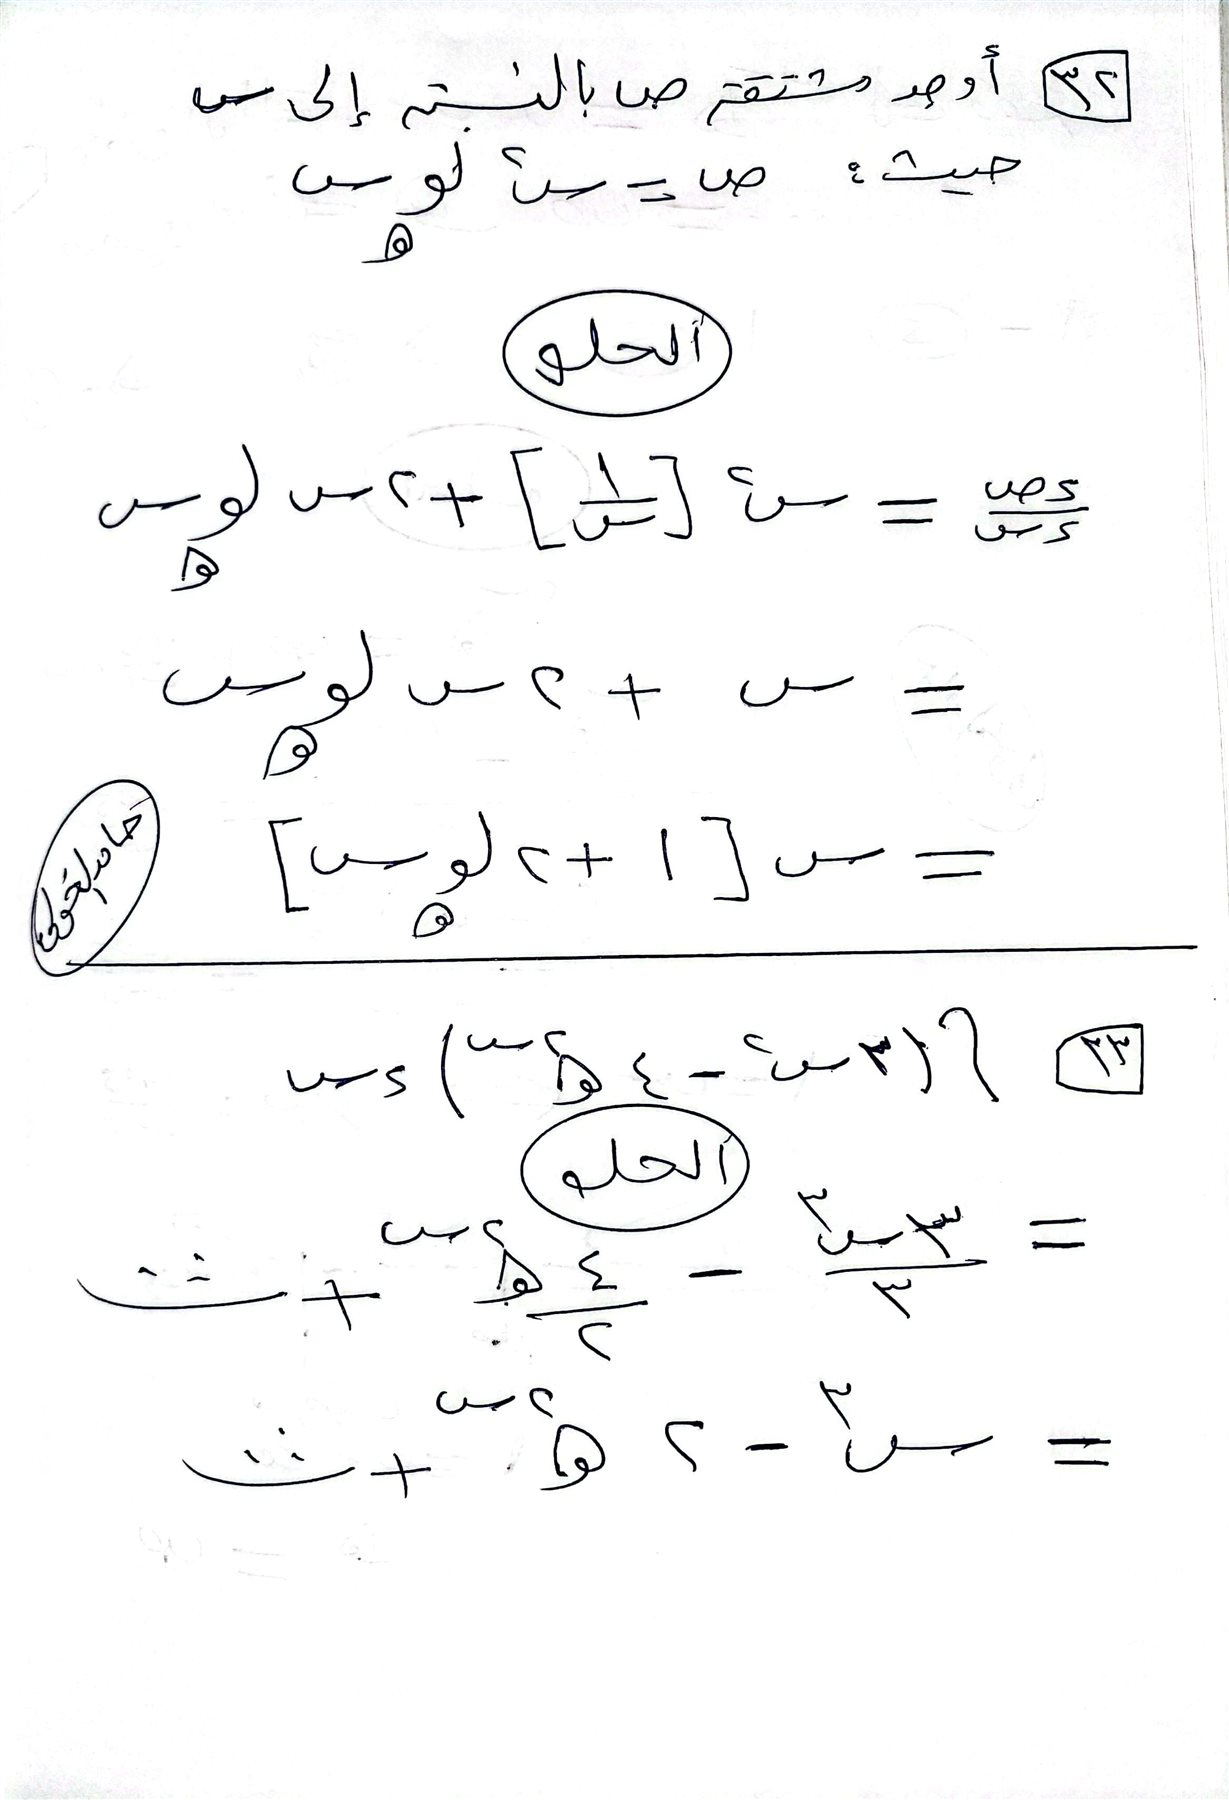 ٣٢ أوجد مشتقة ص بالنسبة إلى س
حيث: ص = س٢ لو_هـ س
الحلو
دص/دس = س٢ [١/س] + ٢س لو_هـ س
= س + ٢س لو_هـ س
= س [١ + ٢ لو_هـ س]
٣٣ ∫(٣س٢ - ٤هـ^٢س) دس
الحلو
= ٣س٣/٣ - ٤/٢ هـ^٢س + ث
= س٣ - ٢هـ^٢س + ث